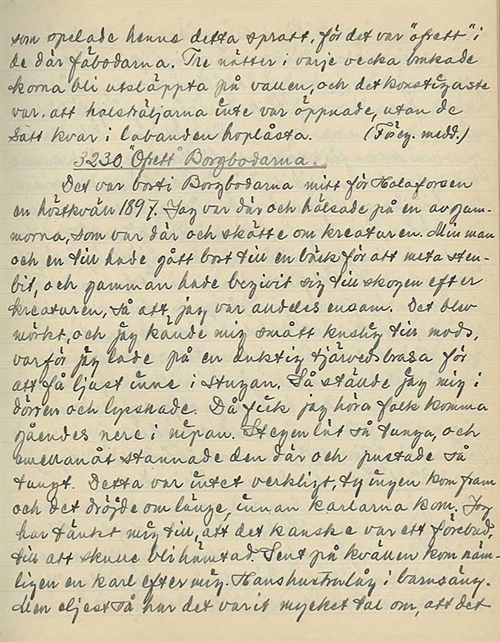 som spelade henne detta spratt, för det var "ofrett" i
de där fäbodarna. Tre nätter i varje vecka brukade
korna bli utsläppta på vallen, och det konstigaste
var att halsträljarna inte var öppnade, utan de
satt kvar i labanden hoplåsta. (Föreg. medd.)
3230 "Ofrett" Borgbodarna.
Det var borti Borgbodarna mitt för Holaforsen
en höstkväll 1897. Jag var där och hälsade på en av gum-
morna, som var där och skötte om kreaturen. Min man
och en till hade gått bort till en bäck för att meta sten-
bit, och gumman hade begivit sig till skogen efter
kreaturen, så att jag var alldeles ensam. Det blev
mörkt, och jag kände mig smått kuslig till mods,
varför jag lade på en duktig tjärvedsbrasa för
att få ljust inne i stugan. Så ställde jag mig i
dörren och lyssnade. Då fick jag höra folk komma
gåendes nere i nipan. Stegen lät så tunga, och
emellanåt stannade den där och pustade så
tungt. Detta var intet verkligt, ty ingen kom fram
och det dröjde om länge, innan karlarna kom. Jag
har tänkt mig till, att det kanske var ett förebud,
till att skulle bli hämtad. Sent på kvällen kom näm-
ligen en karl efter mig. Hans hustru låg i barnsäng.
Men eljest så har det varit mycket tal om, att det